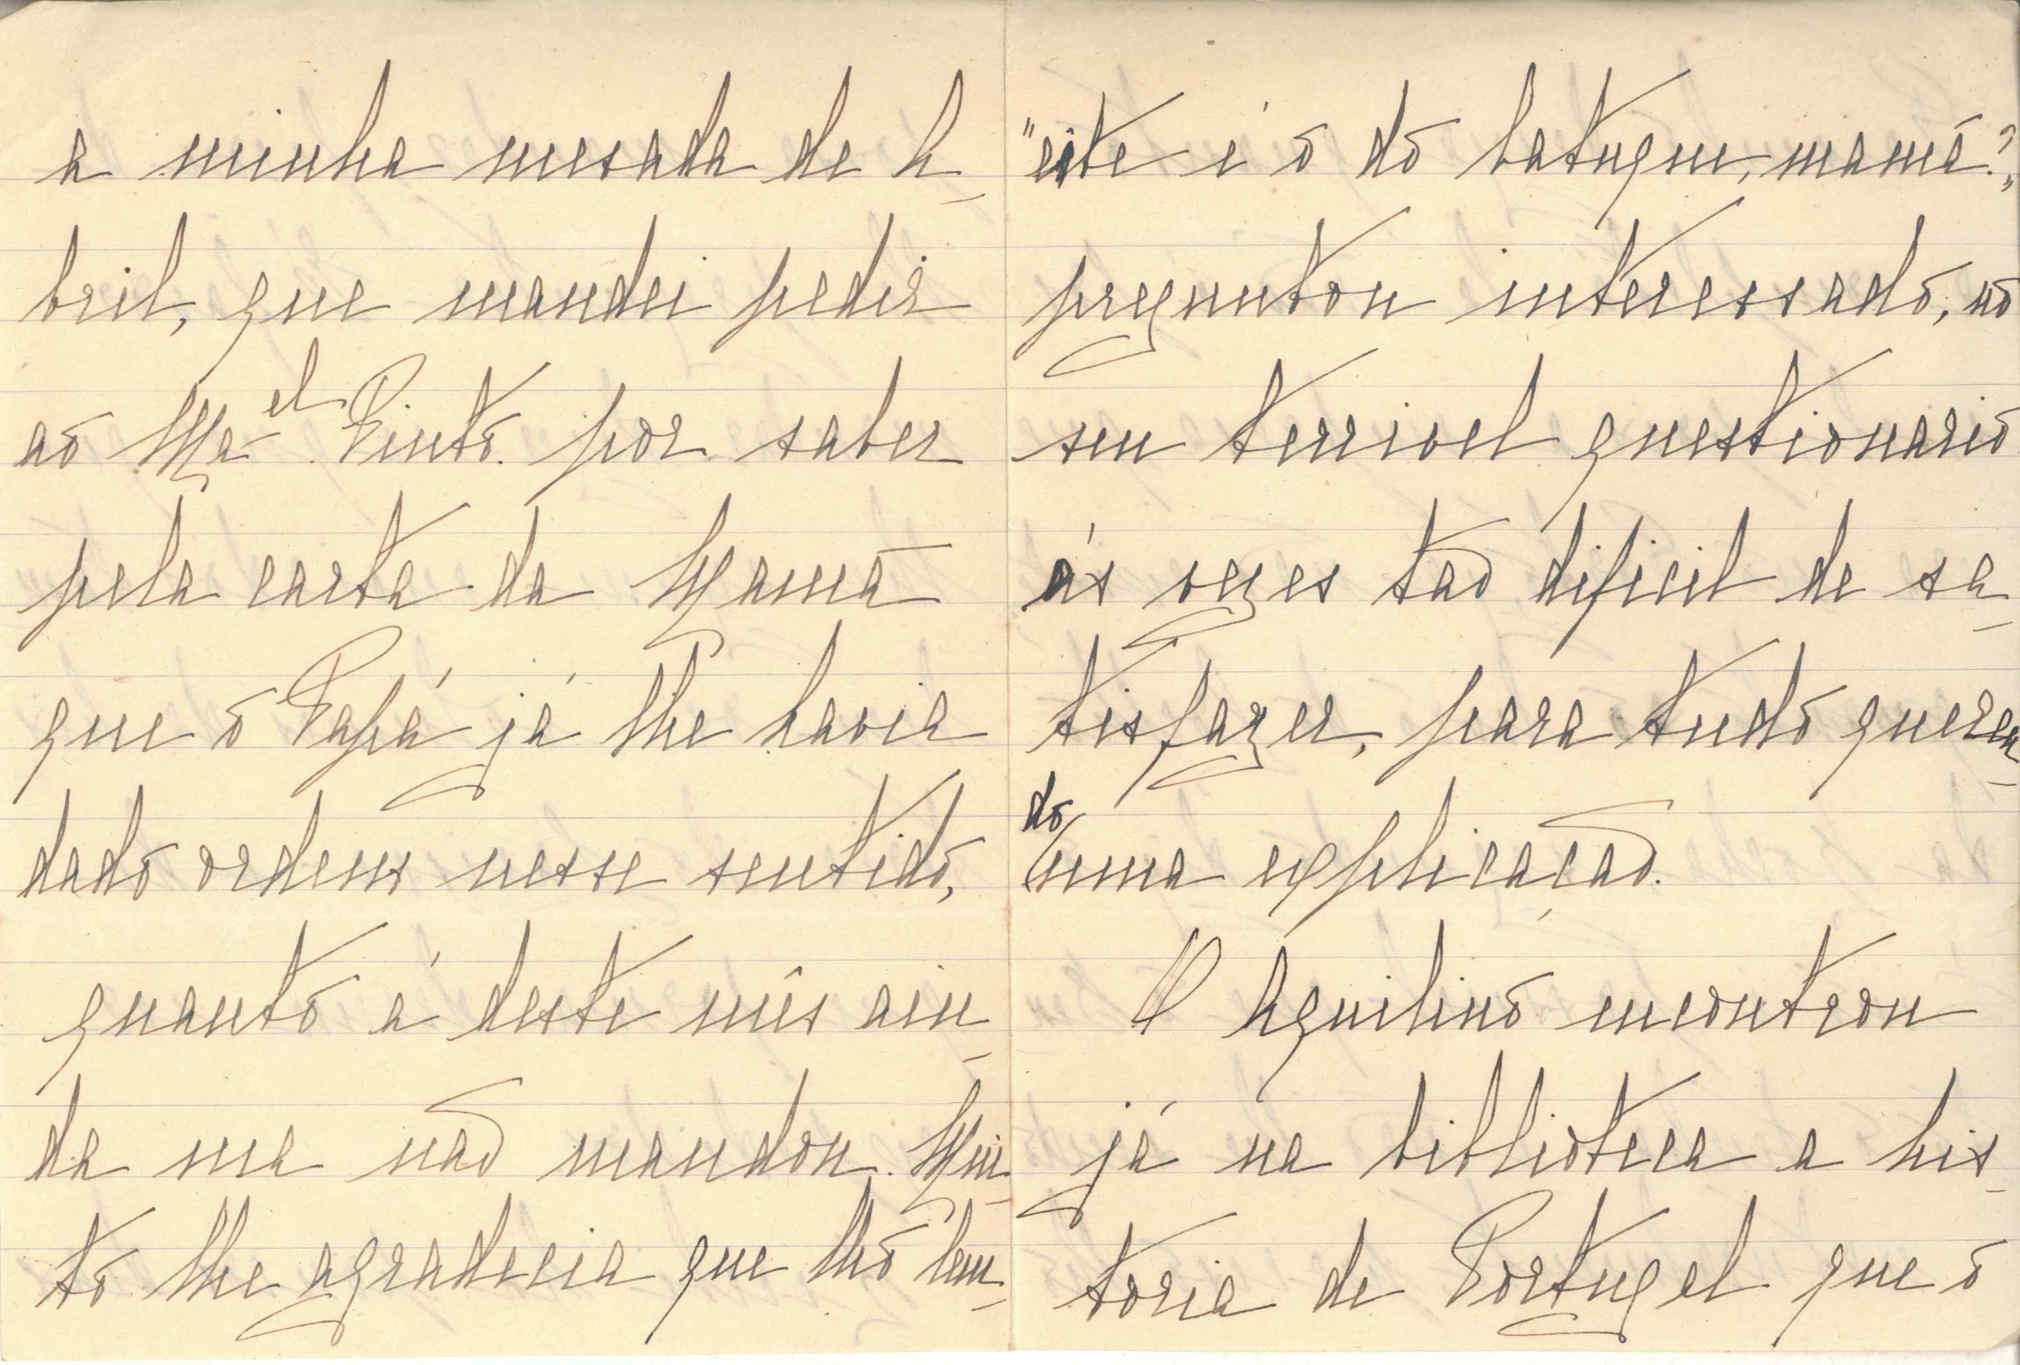 a minha mesada de A-
bril, que mandei pedir
ao Mael Pinto por saber
pela carta da Mamã
que o Papá já lhe havia
dado ordens nesse sentido,
quanto á deste mês ain-
da ma não mandou. Mui-
to lhe agradecia que lho lem-
"este é o do batuque, mamã?"
preguntou interessado, no
seu terrivel questionario
ás vezes tão dificil de sa-
tisfazer, para tudo queren-
do uma explicação.
O Aquilino encontrou
já na biblioteca a his-
toria de Portugal que o